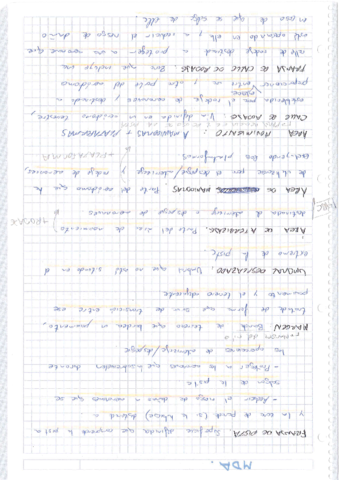 MDA.
FRANJA DE PISTA. Superficie definida que comprende la pista
y la zona de parada (si la hubiese) destinada a
- Reducir el riesgo de daños a aeronaves que se
salgan de la pista
- Proteger a las aeronaves que la sobrevuelan durante
las operaciones de aterrizaje/despegue
MARGEN. Banda de terreno que bordea un pavimento,
tratada de forma que sirva de transición entre ese
pavimento y el terreno adyacente
UMBRAL DESPLAZADO. Umbral que no está situado en el
extremo de la pista.
ÁREA DE ATERRIZAJE. Parte del área de movimiento
destinada al aterrizaje o despegue de aeronaves
ÁREA DE MANIOBRAS. Parte del aeródromo que ha
de utilizarse para el despegue/aterrizaje y rodaje de aeronaves,
excluyendo las plataformas
+PLATAFORMA
ÁREA MOVIMIENTO. MANIOBRAS + PLATAFORMAS
CALLE DE RODAJE: Vía definida en un aeródromo terrestre,
establecida para el rodaje de aeronaves y destinada a
proporcionar enlace entre una y otra parte del aeródromo
FRANJA DE CALLE DE RODAJE: Zona que incluye una
calle de rodaje destinada a proteger a una aeronave que
está operando en ella y a reducir el riesgo de daño
en caso de que se salga de ella.